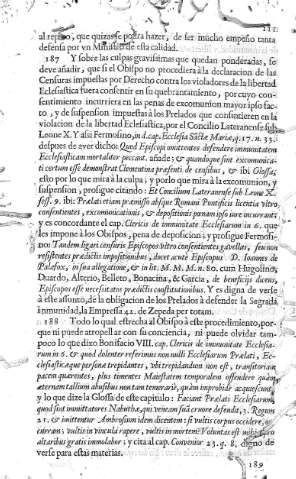 al reposo, que quizasse podra hazer, de ser mucho empeño tanta
defensa por vn Ministro de esta calidad.
187 Y sobre las culpas gravissimas que quedan ponderadas, se
deve añadir, que si el Obispo no procediera à la declaracion de las
Censuras impuestas por Derecho contra los violadores de la libertad
Eclesiastica fuera consentir en su quebrantamiento, por cuyo con-
sentimiento incurriera en las penas de excomunion mayor ipso fac-
to, y de suspension impuestas à los Prelados que consintieren en la
violacion de la libertad Eclesiastica, por el Concilio Lateranense sub
Leone X. Y assi Fermosino, in d. cap. Ecclesia Sactæ Mariæ, q. 17. n. 33.
despues de aver dicho: Quod Episcopi omittentes defendere immunitatem
Ecclesiasticam mortaliter peccant. añade; & quandoque sint excomunica-
ti certum esse demonstrat Clementina præsenti de censibus, & ibi Glossa;
esto por lo que mira à la culpa, y por lo que mira à la excomunion, y
suspension, prosigue citando: Et Concilium Lateranense sub Leone X.
sess. 9. ibi: Prælati etiam præmisso absque Romani Pontificis licentia vltro
consentientes, excomunicationis, & depositionis pœnam ipso iure incurrant;
y es concordante el cap. Clericis de immunitate Ecclesiarum in 6. que
les impone à los Obispos, pena de deposicion; y prosigue Fermosi-
no: Tandem ligari censuris Episcopos vltro consentientes gabellas, seu non
resistentes prædictis impositionibus, docet acutè Episcopus D. Ioannes de
Palafox, in sua allegatione, & in lit. M. M. M. n. 80. cum Hugolino,
Duardo, Alterio, Belleto, Bonacina, & Garcia, de beneficijs dicens,
Episcopos esse necessitatos prædictis constitutionibus. Y es digna de verse
à este assunto, de la obligacion de los Prelados à defender la Sagrada
inmunidad, la Empressa 42. de Zepeda per totam.
188 Todo lo qual estrecha al Obispo à este procedimiento, por-
que ni puede atropellar con su conciencia, ni puede olvidar tam-
poco lo que dixo Bonifacio VIII. cap. Clericis de immunitate Ecclesia-
rum in 6. & quod dolenter referimus non nulli Ecclesiarum Prælati, Ec-
clesiasticaque personæ trepidantes, vbi trepidandum non est, transitoriam
pacem quærentes, plus timentes Maiestatem temporalem offendere quàm
æternam tallium abusibus non tam temerariè, quàm improbidè acquiescunt,
y lo que dize la Glossa de este capitulo: Faciunt Prælati Ecclesiarum
quod sint immitatores Nabutha, qui vineam suã cruore defenda, 3. Regum
21. & imittentur Ambrosium idem dicetem: si vultis corpus occidere,
aterram; vultis in vincula rapere, vultis in mortem: Voluntas est mihi pro
altaribus gratis immolabor; y cita al cap. Convenior 23. q. 8. digno de
verse para estas materias.
189